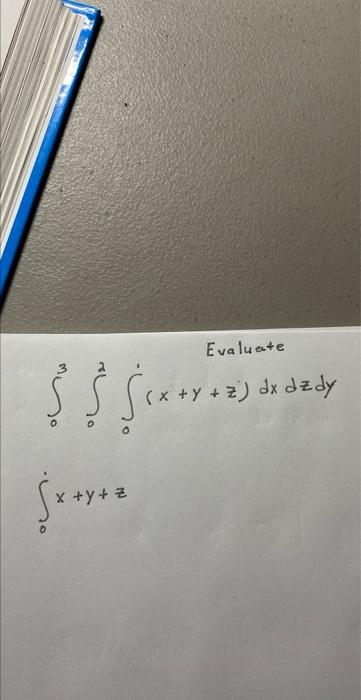 Evaluate
∫₀³ ∫₀² ∫₀¹ (x + y + z) dx dz dy
∫₀¹ x + y + z